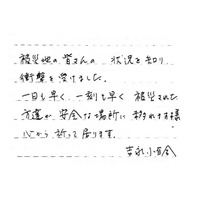 被災地の皆さんの 状況を知り
衝撃を受けました。
一日も早く、一刻も早く 被災された
方達が 安全な場所に 移れます様
心から 祈って居ります。
吉永小百合